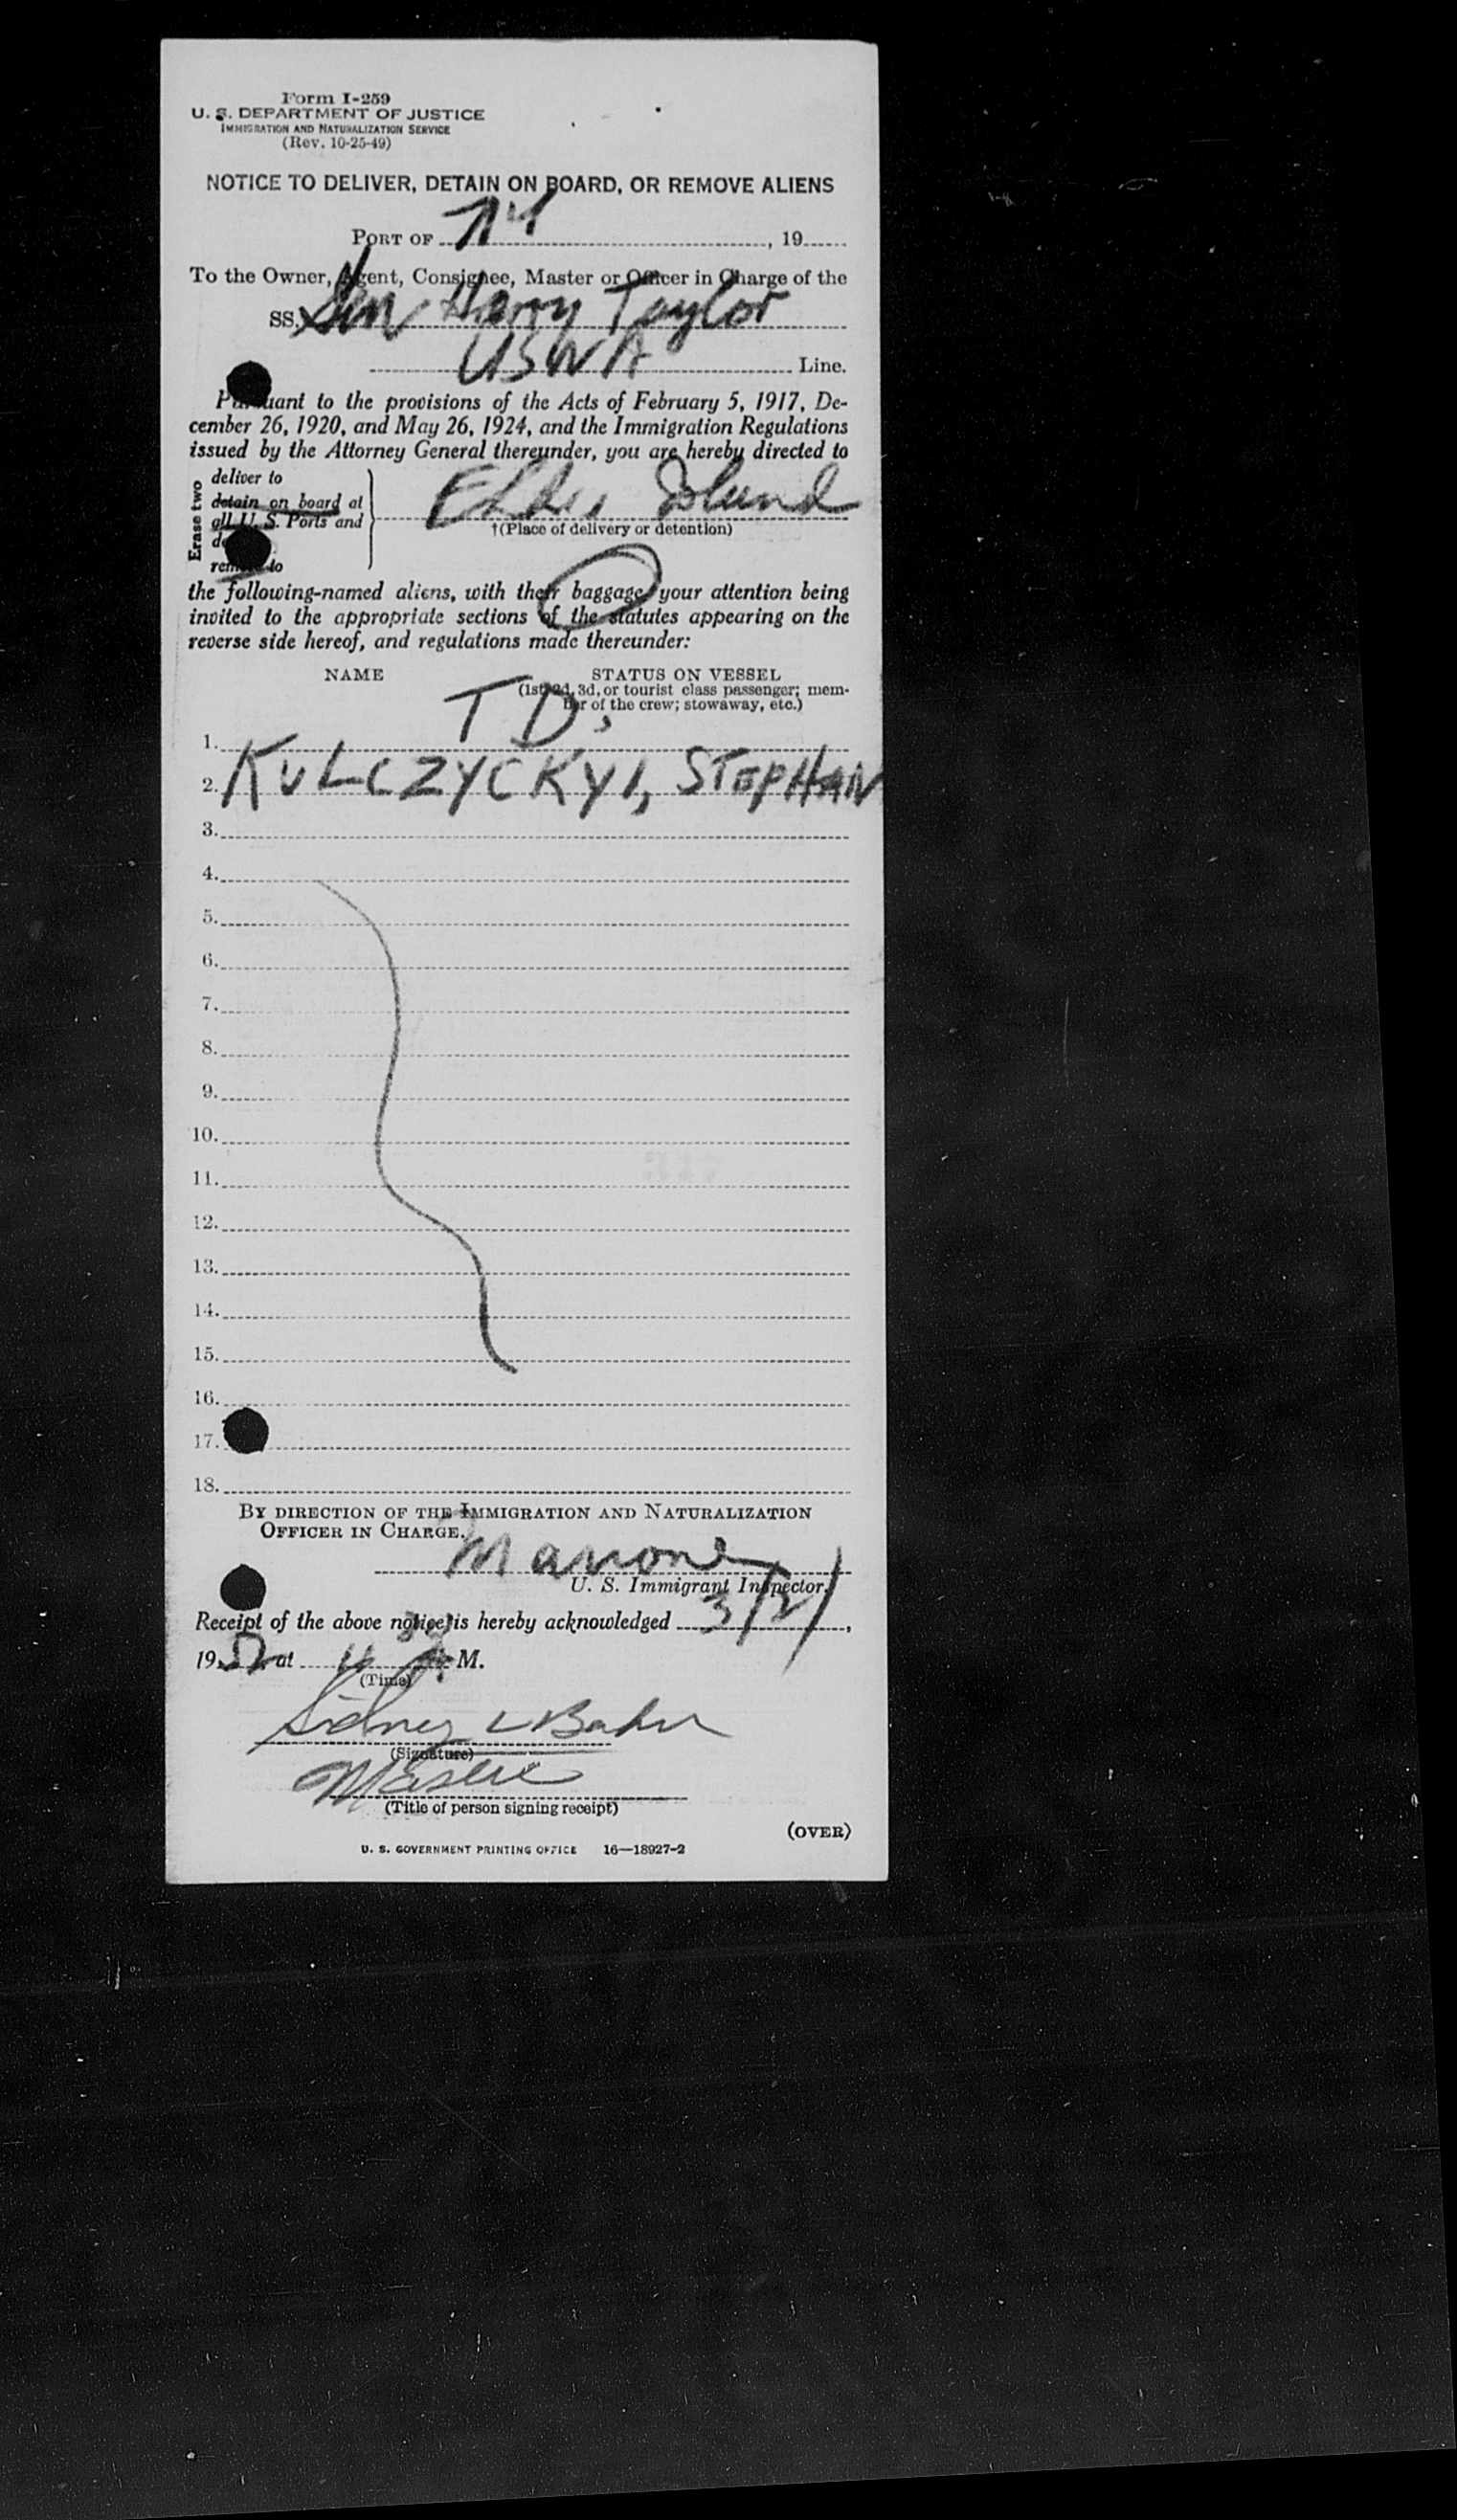 Form I-259
U. S. DEPARTMENT OF JUSTICE
IMMIGRATION AND NATURALIZATION SERVICE
(Rev. 10-25-49)
NOTICE TO DELIVER, DETAIN ON BOARD, OR REMOVE ALIENS
PORT OF NY, 19
To the Owner, Agent, Consignee, Master or Officer in Charge of the
SS. Gen Harry Taylor
Line.
Pursuant to the provisions of the Acts of February 5, 1917, De-
cember 26, 1920, and May 26, 1924, and the Immigration Regulations
issued by the Attorney General thereunder, you are hereby directed to
Erase two
deliver to
detain on board at
all U. S. Ports and
remove to
Ellis Island
†(Place of delivery or detention)
the following-named aliens, with their baggage, your attention being
invited to the appropriate sections of the statutes appearing on the
reverse side hereof, and regulations made thereunder:
NAME STATUS ON VESSEL
(1st, 2d, 3d, or tourist class passenger; mem-
ber of the crew; stowaway, etc.)
TD,
1.
2. KULCZYCKYI, STEPHAN
3.
4.
5.
6.
7.
8.
9.
10.
11.
12.
13.
14.
15.
16.
17.
18.
BY DIRECTION OF THE IMMIGRATION AND NATURALIZATION
OFFICER IN CHARGE.
U. S. Immigrant Inspector.
Receipt of the above notice is hereby acknowledged 3/21,
19 at M.
(Time)
Sidney
(Signature)
Master
(Title of person signing receipt)
(OVER)
U. S. GOVERNMENT PRINTING OFFICE 16—18927-2